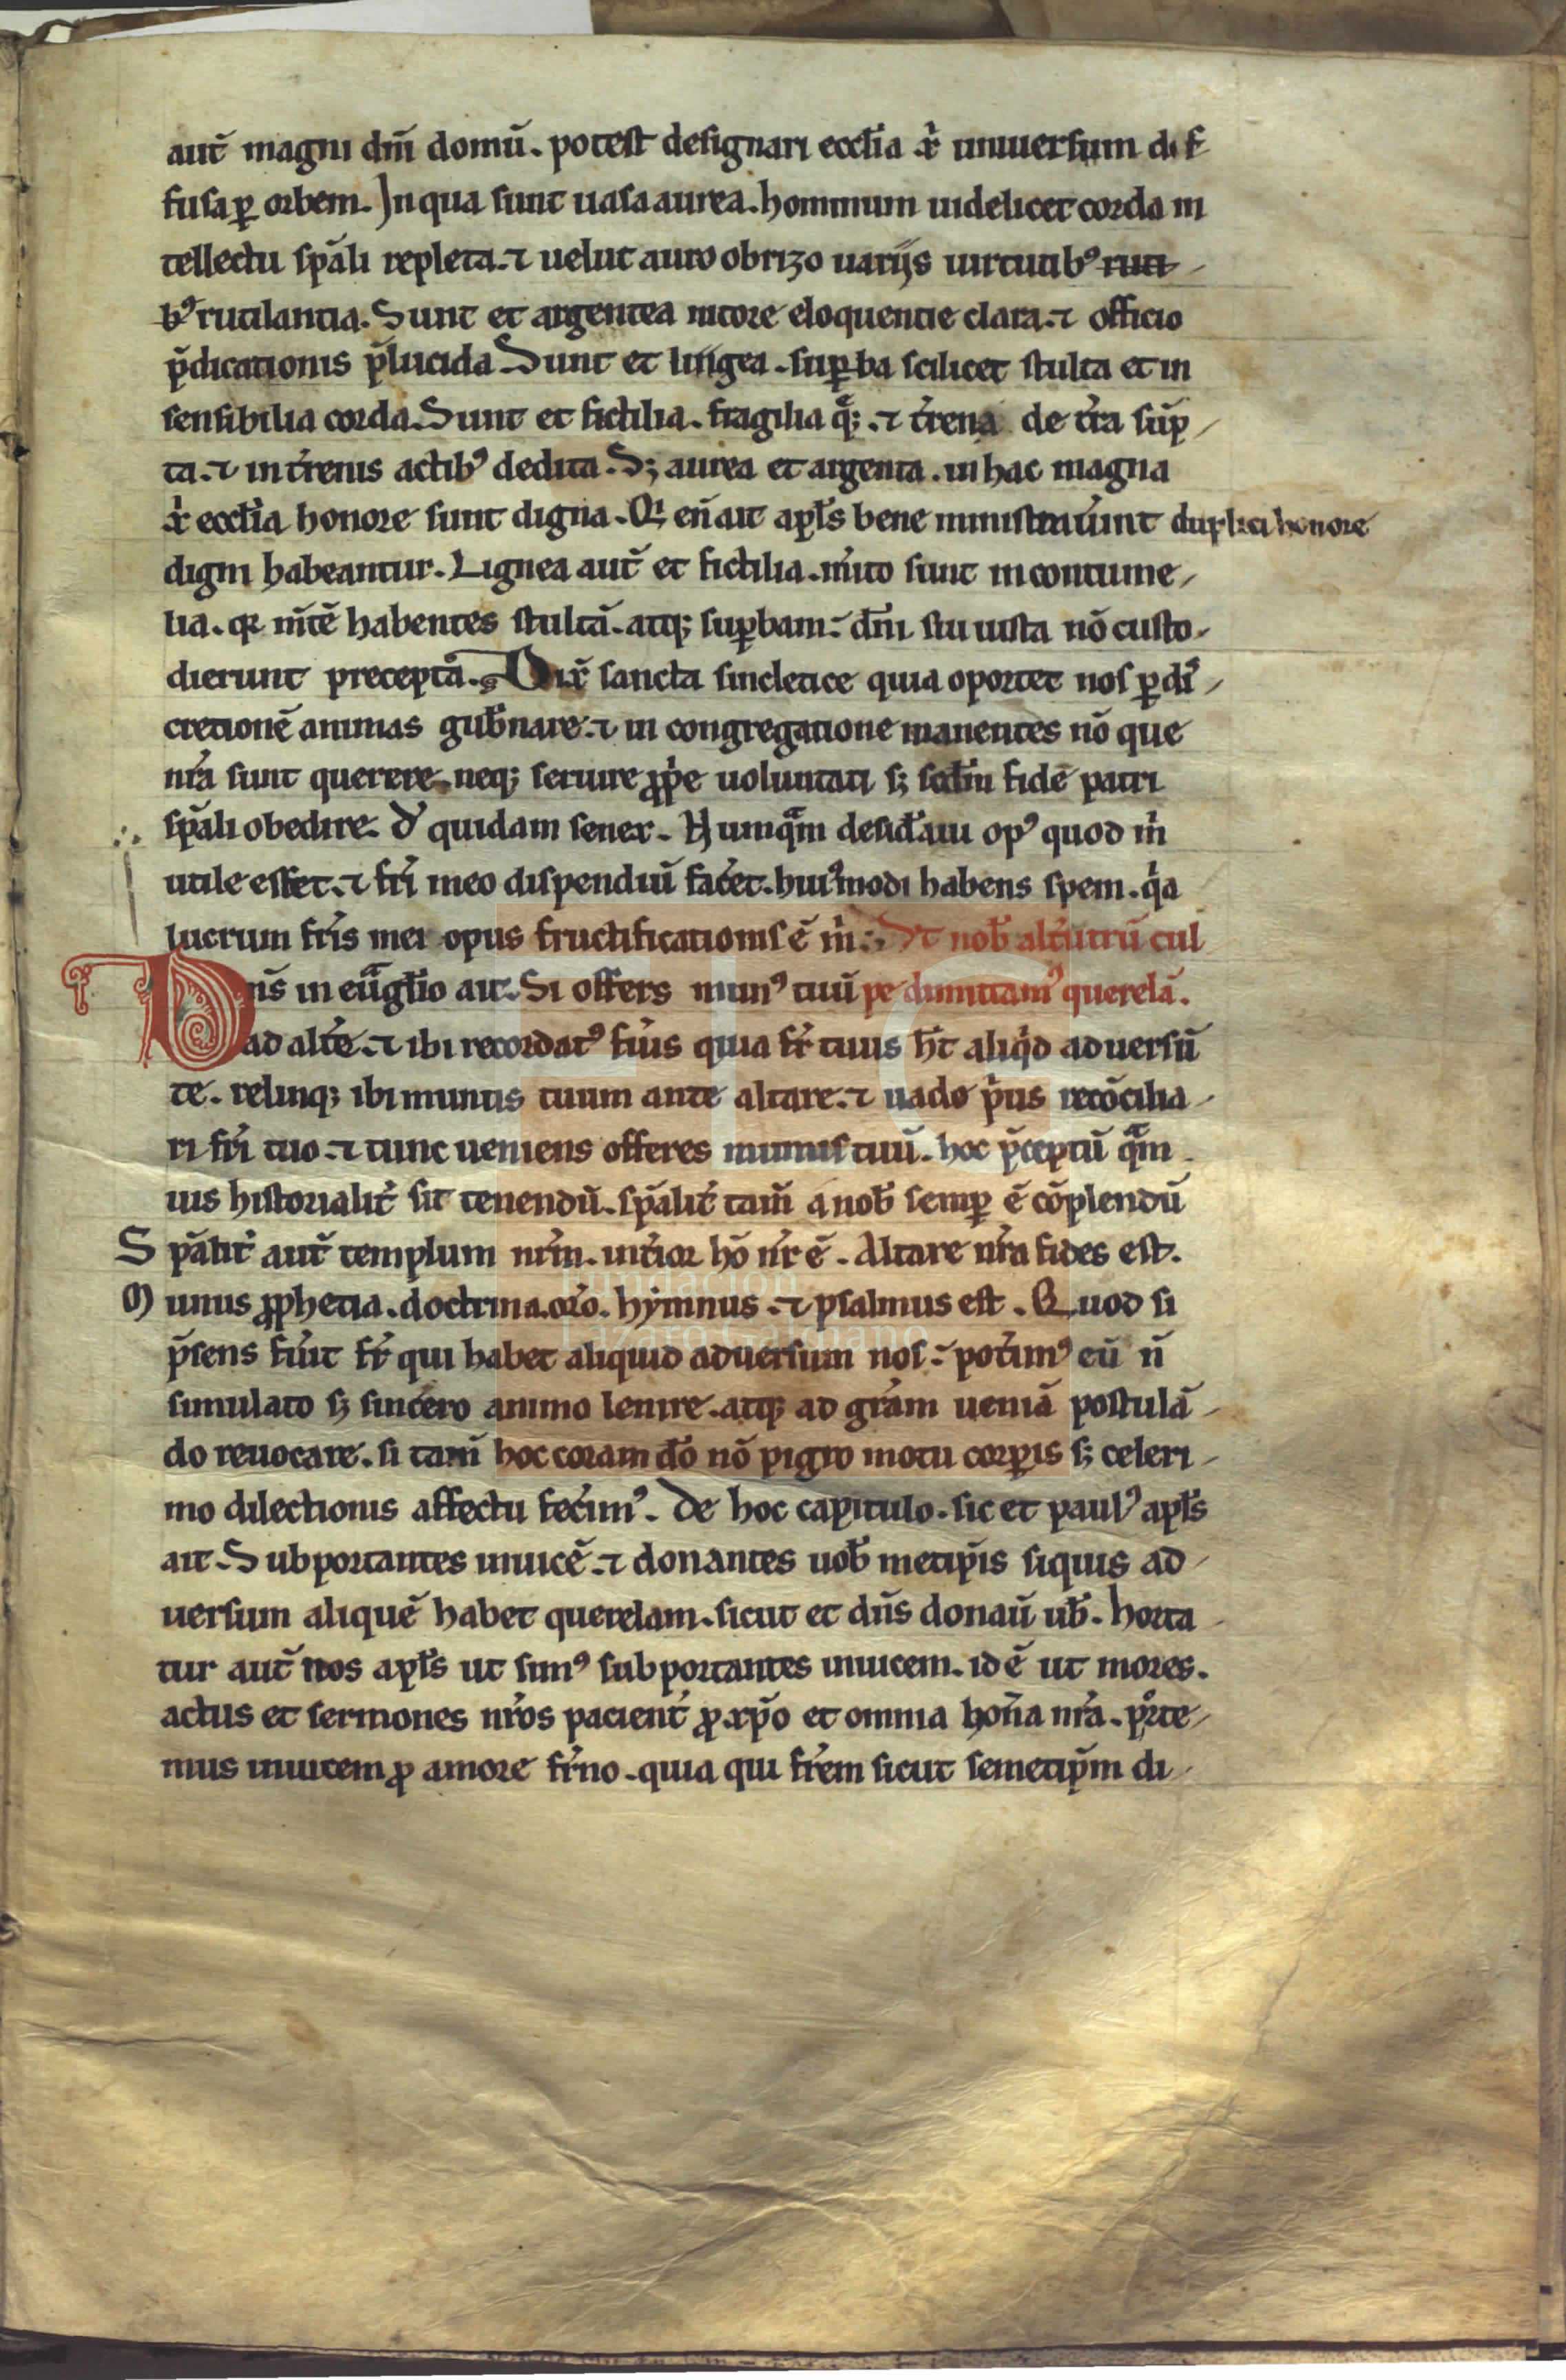 aut̄ magni dn̄i domū. potest designari eccl̄ia xp̄i uniuersum dif
fusa ꝑ orbem. In qua sunt uasa aurea. hominum uidelicet corda in
tellectu sp̄ali repleta. ⁊ uelut auro obrizo uarijs uirtutibꝰ
bꝰ rutilantia. Sunt et argentea nitore eloquentie clara. ⁊ officio
p̄dicationis p̄lucida Sunt et lingea. suꝑba scilicet stulta et in
sensibilia corda. Sunt et fictilia. fragilia qͣꝫ. ⁊ t̉rena de t̉ra sūp
ta. ⁊ in t̉renis actibꝰ dedita. Sꝫ aurea et argentea. in hac magna
xp̄i eccl̄ia honore sunt digna. Qi en̄ ait apl̄s bene ministrauer̄int duplici honore
digni habeantur. Lignea aut̄ et fictilia. m̉ito sunt in contume
lia. qr mītē habentes stultā. atqꝫ suꝑbam. dn̄i sui iusta nō custo
dierunt precepta. Dix̄ sancta sincletice quia oportet nos ꝑ dis
cretionē animas gub̄nare. ⁊ in congregatione manentes nō que
nr̄a sunt querere. neqꝫ seruire ꝓp̉e uoluntati sꝫ scd̄m fidē patri
sp̄ali obedire. d̉ quidam senex. Nunqͣm desid̄aui opꝰ quod m̉
utile esset. ⁊ fr̄i meo dispendiū fac̉et. huiꝰmodi habens spem. qͥa
lucrum fr̄is mei opus fructificationis ē m̉. Vt nob̄ alt̉utrū cul
Dn̄s in eūgl̄io ait. Si offers munꝰ tuū pe dimittamꝰ querelā.
ad altr̄e. ⁊ ibi recordatꝰ fủis quia fr̄ tuus h̄t aliqͥd aduersū
te. relinqꝫ ibi munus tuum ante altare. ⁊ uade pͥus recōcilia
ri fr̄i tuo. ⁊ tunc ueniens offeres munus tuū. hoc p̄ceptū qͣm
uis historialit̉ sit tenendū. sp̄alit̉ tam̄ a nob̄ semꝑ ē cōplendū
Sp̄alit̉ aut̄ templum nr̄m. int̉ior hō nr̄ ē. Altare nr̄a fides est.
Munus ꝓphetia. doctrina. or̄o. hymnus. ⁊ psalmus est. Quod si
p̄sens fủit fr̄ qui habet aliquid aduersum nos. pot̉imꝰ eū n̄
simulato sꝫ sincero animo lenire. atqꝫ ad gr̄am ueniā postulā
do reuocare. si tam̄ hoc coram do̅ nō pigro motu corꝑis sꝫ celeri
mo dilectionis affectu fec̉imꝰ. De hoc capitulo. sic et paulꝰ apl̄s
ait. Subportantes inuicē. ⁊ donantes uob̄ metip̄is siquis ad
uersum aliquē habet querelam. sicut et dn̄s donauī ub̄. horta
tur aut̄ nos apl̄s ut simꝰ subportantes inuicem. id ē ut mores.
actus et sermones nr̄os pacient̉ ꝓ xp̄o et omnia hon̄a nr̄a. porte
mus inuicem ꝓ amore fr̄no. quia qui fr̄em sicut semetip̄m di